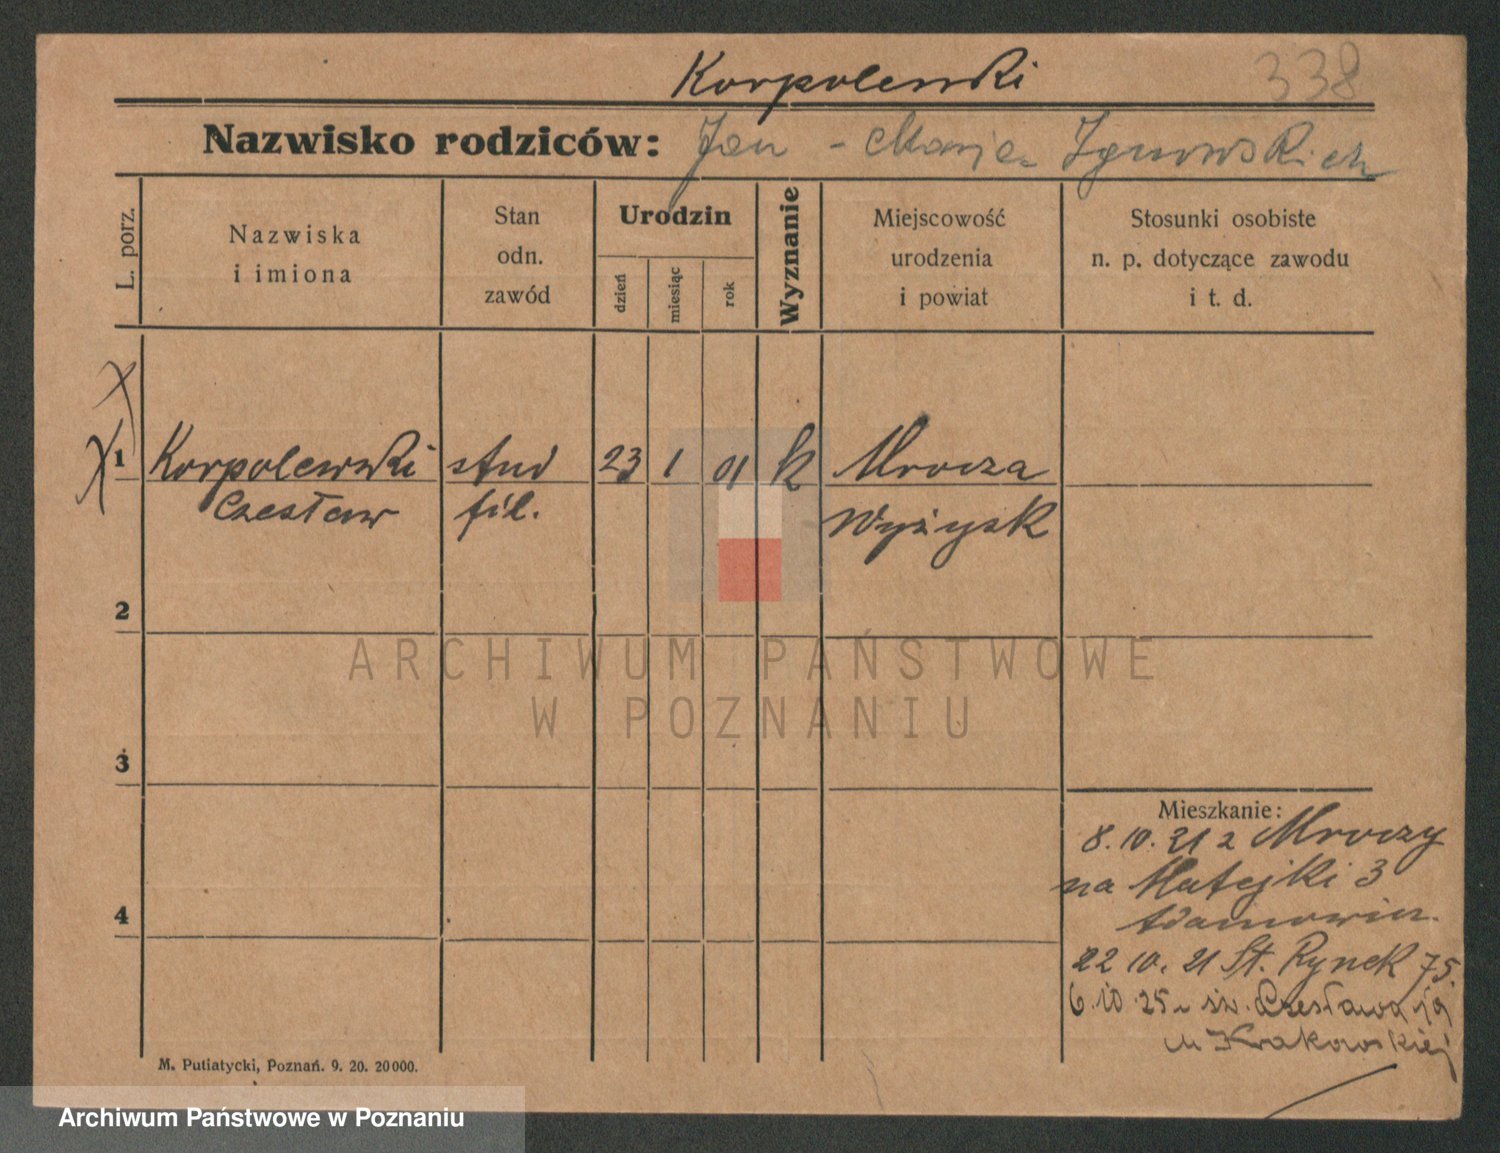 Korpolewski
338
Nazwisko rodziców: Jan - Marja
L. porz.
Nazwiska
i imiona
Stan
odn.
zawód
Urodzin
dzień
miesiąc
rok
Wyznanie
Miejscowość
urodzenia
i powiat
Stosunki osobiste
n. p. dotyczące zawodu
i t. d.
1 Korpolewski stud 23 1 01 k Mrocza
Czesław fil. Wyżysk
2
3
4
Mieszkanie:
8.10.21 z Mroczy
na Matejki 3
22 10. 21 St. Rynek 75.
6.10.25 św. Czesława 19
Krakowskiej
M. Putiatycki, Poznań. 9. 20. 20000.
ARCHIWUM PAŃSTWOWE
W POZNANIU
Archiwum Państwowe w Poznaniu